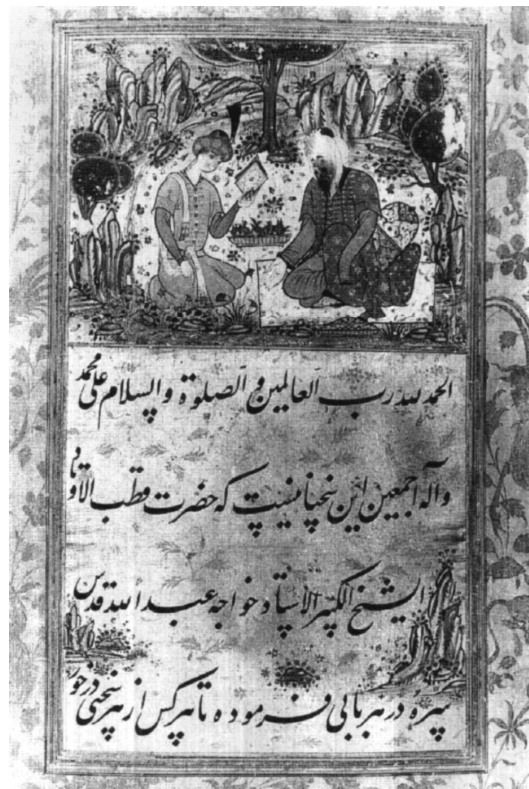 الحمد لله رب العالمین و الصلوة و السلام علی محمد
و آله اجمعین این سخنانیست که حضرت قطب الاوتاد
الشیخ الکبیر الاستاد خواجه عبد الله قدس
سره در هر بابی فرموده تا هر کس از هر سخنی در خور